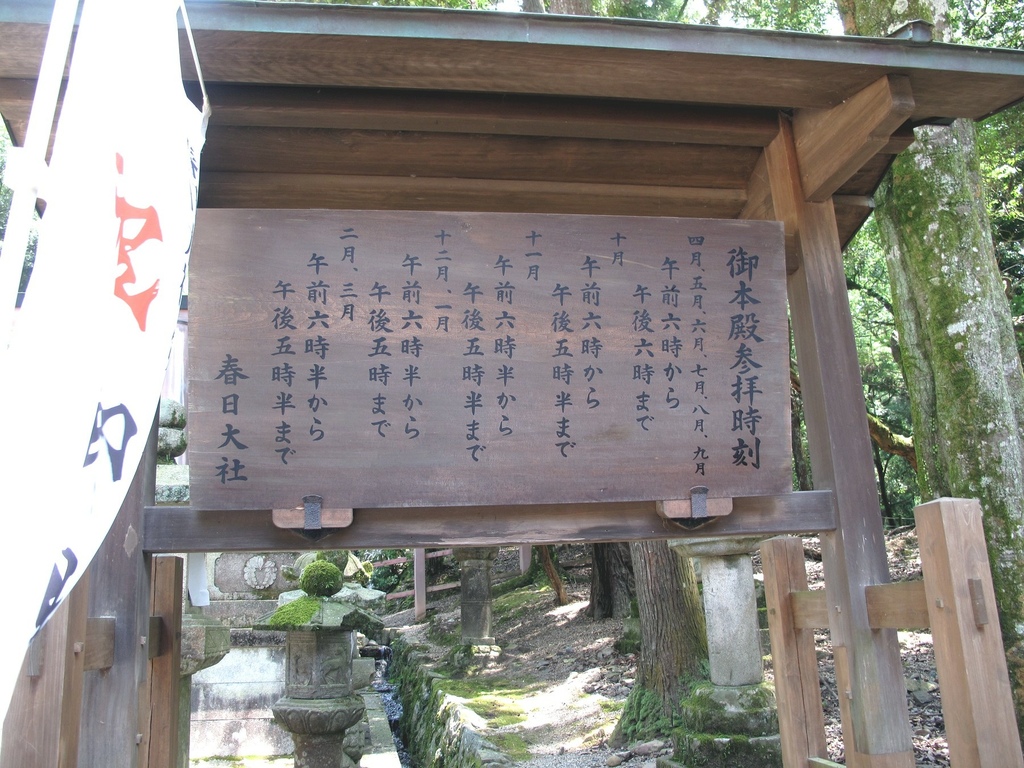 御本殿参拝時刻
四月、五月、六月、七月、八月、九月
午前六時から
午後六時まで
十月
午前六時から
午後五時半まで
十一月
午前六時半から
午後五時半まで
十二月、一月
午前六時半から
午後五時まで
二月、三月
午前六時半から
午後五時半まで
春日大社